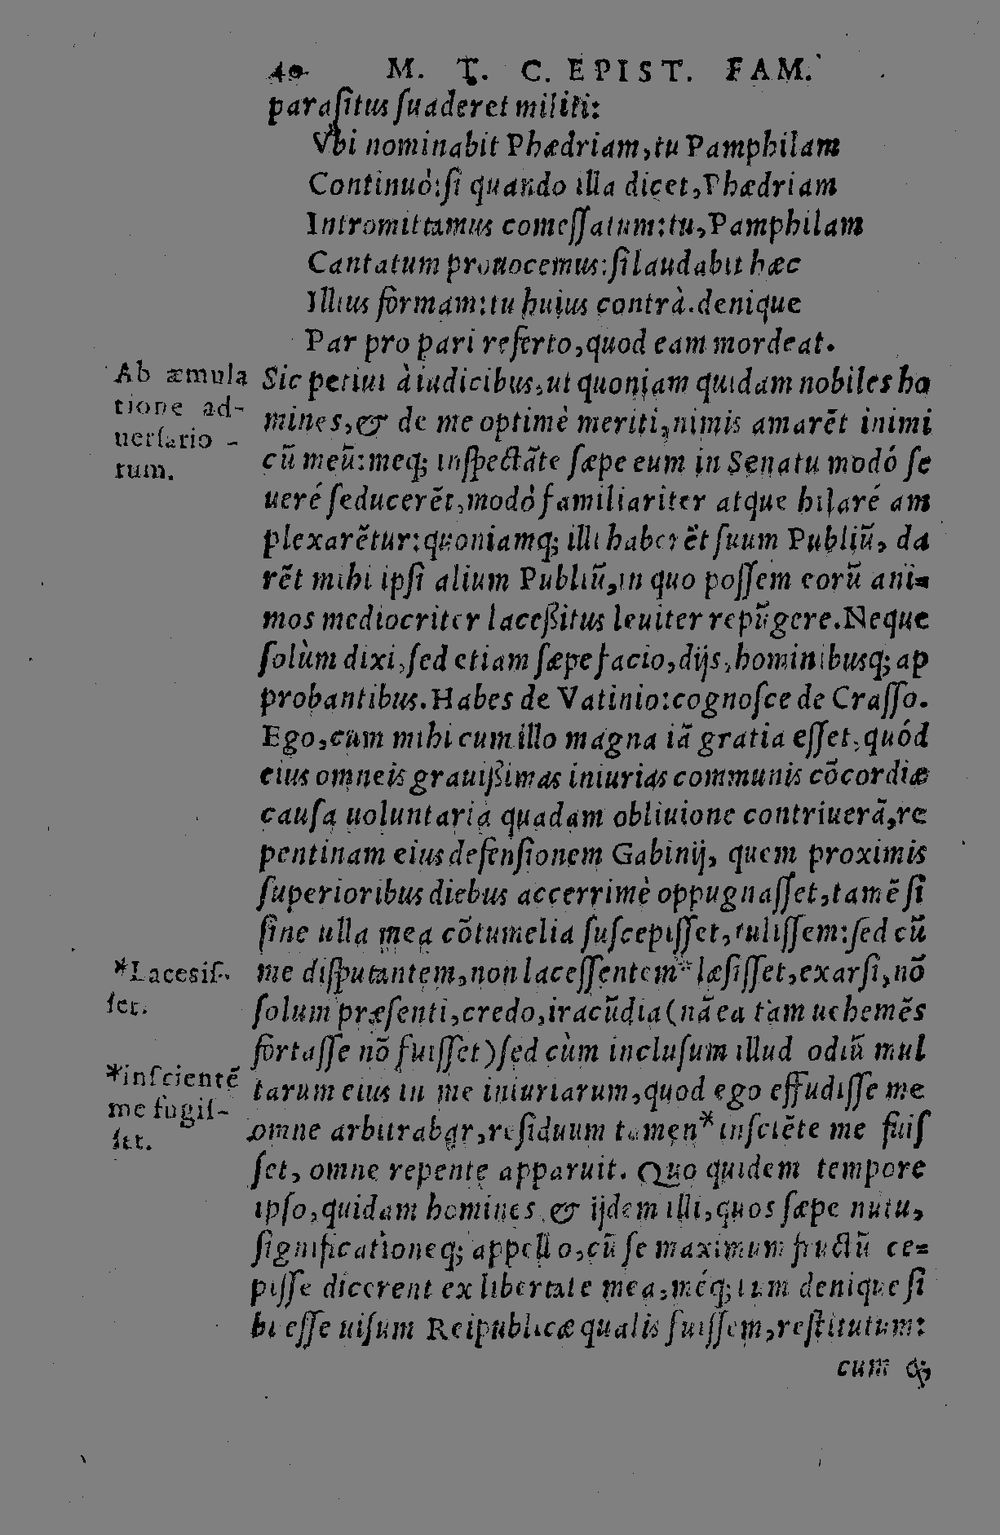 40 M. T. C. EPIST. FAM.
parasitus suaderet militi:
Vbi nominabit Phædriam, tu Pamphilam
Continuò: si quando illa dicet, Phædriam
Intromittamus comessatum: tu, Pamphilam
Cantatum prouocemus: si laudabit hæc
Illius formam: tu huius contrà. denique
Par pro pari referto, quod eam mordeat.
Ab æmula
tione ad-
uersario-
rum.
Sic petiui à iudicibus, ut quoniam quidam nobiles ho
mines, & de me optimè meriti, nimis amarẽt inimi
cũ meũ: meq; inspectãte sæpe eum in Senatu modó se
ueré seducerẽt, modò familiariter atque hilaré am
plexarẽtur: quoniamq; illi haberẽt suum Publiũ, da
rẽt mihi ipsi alium Publiũ, in quo possem eorũ ani-
mos mediocriter laceßitus leuiter repũgere. Neque
solùm dixi, sed etiam sæpe facio, dijs, hominibusq; ap
probantibus. Habes de Vatinio: cognosce de Crasso.
Ego, cum mihi cum illo magna iã gratia esset, quód
eius omneis grauißimas iniurias communis cõcordiæ
causa uoluntaria quadam obliuione contriuerã, re
pentinam eius defensionem Gabinij, quem proximis
superioribus diebus accerrimè oppugnasset, tamẽ si
sine ulla mea cõtumelia suscepisset, tulissem: sed cũ
*Lacesis-
set.
me disputantem, non lacessentem* læsisset, exarsi, nõ
solum præsenti, credo, iracũdia (nã ea tam uehemẽs
fortasse nõ fuisset) sed cùm inclusum illud odiũ mul
*inscientẽ
me fugis-
set.
tarum eius in me iniuriarum, quod ego effudisse me
omne arbitrabar, residuum tamen* insciẽte me fuis
set, omne repente apparuit. Quo quidem tempore
ipso, quidam homines & ijdem illi, quos sæpe nutu,
significationeq; appello, cũ se maximum fructũ ce-
pisse dicerent ex libertate mea, méq; tum denique si
bi esse uisum Reipublicæ qualis fuissem, restitutum:
cum q;